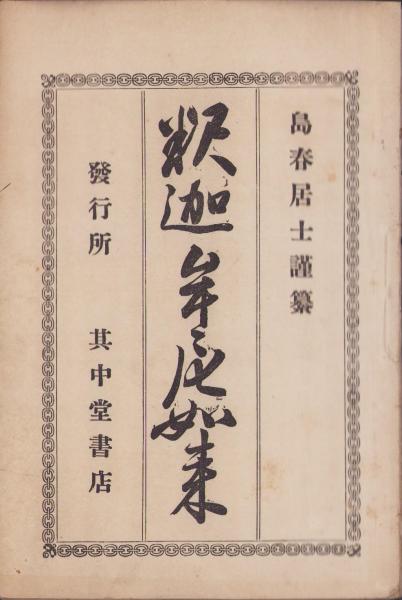 島春居士謹纂
釈迦牟尼如来
發行所 其中堂書店